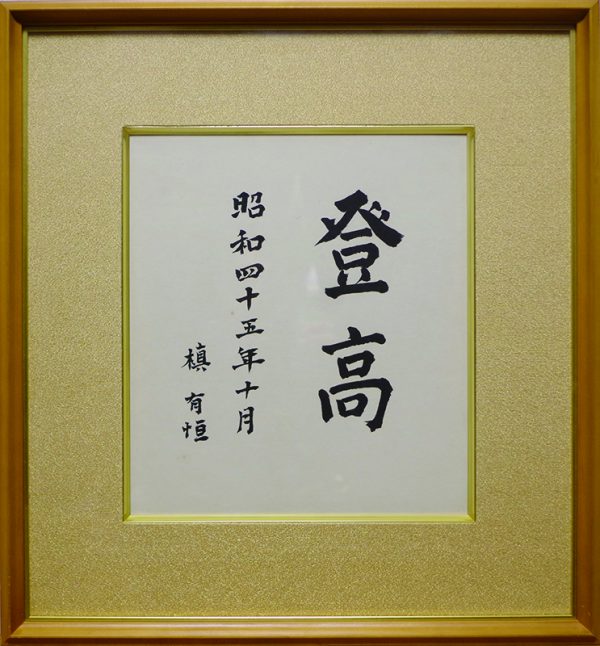 登高
昭和四十五年十月
槇有恒